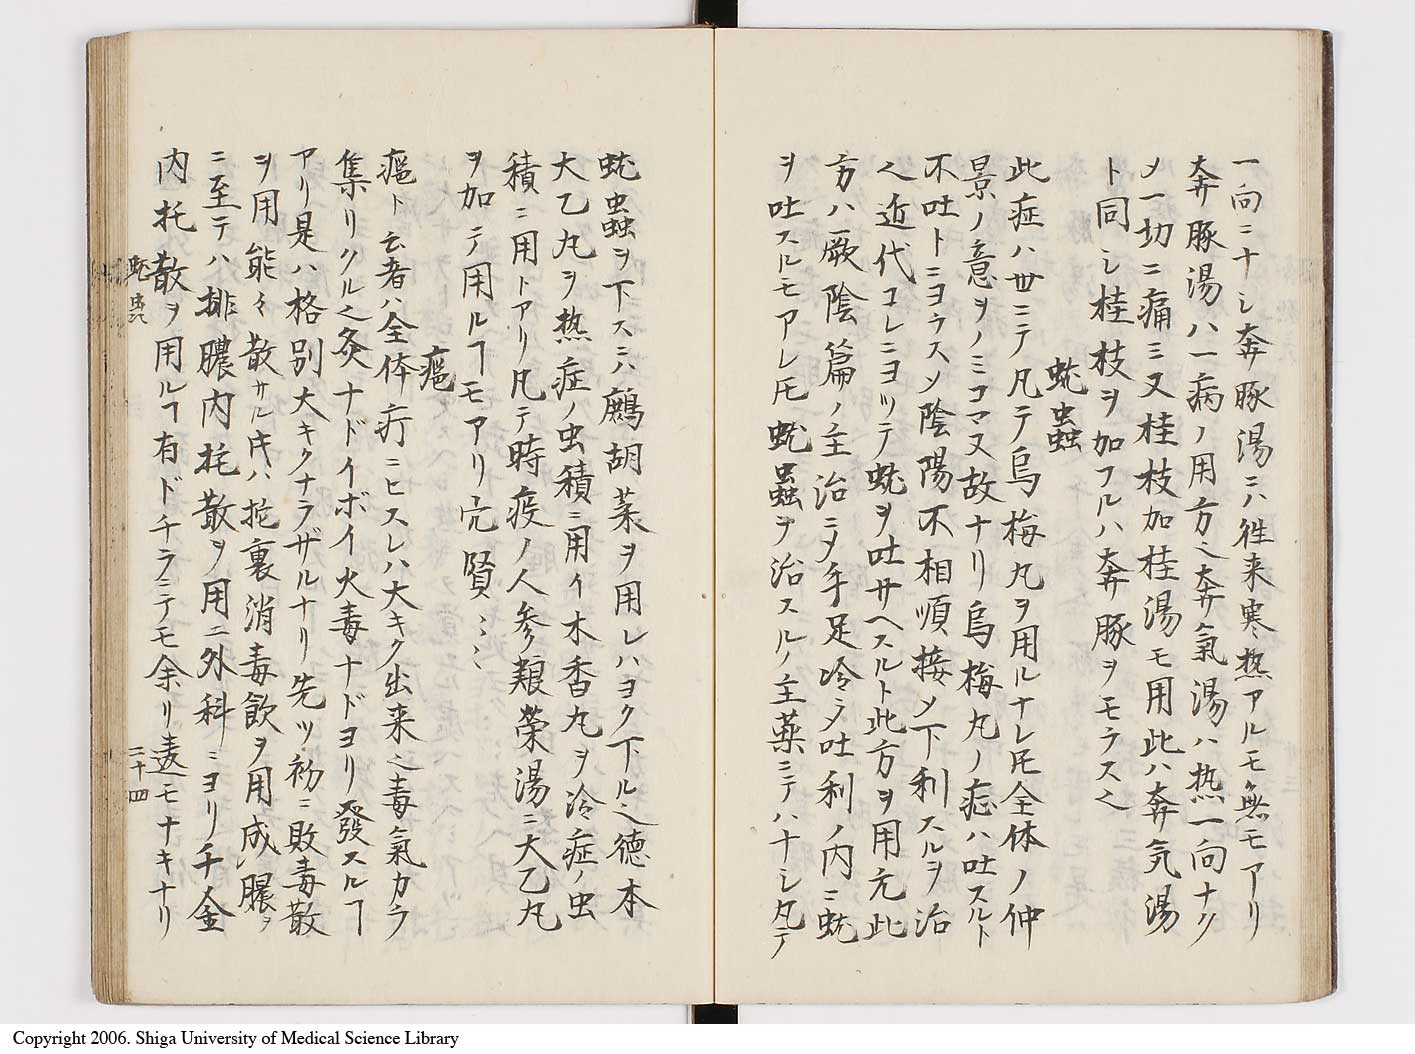 一向ニナシ奔豚湯ニハ往来寒熱アルモ無モアリ
奔豚湯ハ一病ノ用方也奔氣湯ハ熱一向ナク
メ一切ニ痛ミ又桂枝加桂湯モ用此ハ奔気湯
ト同シ桂枝ヲ加フルハ奔豚ヲモラス也
蚘蟲
此症ハ世ニテ凡テ烏梅丸ヲ用ルナレ𪜈全体ノ仲
景ノ意ヲノミコマヌ故ナリ烏梅丸ノ症ハ吐スルト
不吐トニヨラスメ陰陽不相順接メ下利スルヲ治
也近代コレニヨツテ蚘ヲ吐サヘスルト此方ヲ用元此
方ハ厥陰篇ノ主治ニメ手足冷ヘ吐利ノ内ニ蚘
ヲ吐スルモアレ𪜈蚘蟲ヲ治スルノ主薬ニテハナシ凡テ
蚘蟲ヲ下スニハ鷓胡菜ヲ用レハヨク下ル也徳本
大乙丸ヲ熱症ノ虫積ニ用イ木香丸ヲ冷症ノ虫
積ニ用トアリ凡テ時疫ノ人参親榮湯ニ大乙丸
ヲ加ヘテ用ルヿモアリ完賢ミミ
瘟
瘟ト云者ハ全体疔ニヒスレハ大キク出来也毒氣カラ
集リクル也灸ナドイボイ火毒ナドヨリ發スルヿ
アリ是ハ格別大キクナラザルナリ先ツ初ニ敗毒散
ヲ用能々散サル𪜈ハ托裏消毒飲ヲ用成膿ヲ
ニ至テハ排膿内托散ヲ用ニ外科ニヨリ千金
内托散ヲ用ルヿ有ドチラニテモ余リ違モナキナリ
蚘蟲
二十四
Copyright 2006. Shiga University of Medical Science Library